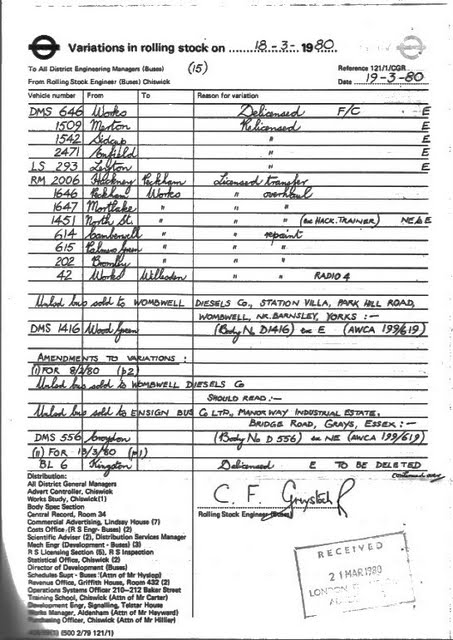 Variations in rolling stock on 18-3-1980
To All District Engineering Managers (Buses) (15) Reference 121/1/CGR
From Rolling Stock Engineer (Buses) Chiswick Date 19-3-80
Vehicle number From To Reason for variation
DMS 646 Works Delicensed F/C E
1509 Merton Relicensed E
1542 Sidcup " E
2471 Enfield " E
LS 293 Leyton " E
RM 2006 Hackney Peckham Licensed transfer
1646 Peckham Works " overhaul
1647 Mortlake " " "
1451 North St. " " " (ex HACK. TRAINER) NE & E
614 Camberwell " " repaint
615 Palmers Green " " "
202 Bromley " " "
42 Works Willesden " " RADIO 4
Unlcd bus sold to WOMBWELL DIESELS Co., STATION VILLA, PARK HILL ROAD,
WOMBWELL, NR. BARNSLEY, YORKS :-
DMS 1416 Wood Green (Body No. D1416) ex E (AWCA 199/619)
AMENDMENTS TO VARIATIONS :
(I) FOR 8/2/80 (p2)
Unlcd bus sold to WOMBWELL DIESELS Co
SHOULD READ :-
Unlcd bus sold to ENSIGN BUS Co LTD., MANOR WAY INDUSTRIAL ESTATE,
BRIDGE ROAD, GRAYS, ESSEX :-
DMS 556 Croydon (Body No D 556) ex NE (AWCA 199/619)
(II) FOR 13/3/80
BL 6 Kingston Delicensed E TO BE DELETED
continued over
Distribution:
All District General Managers
Advert Controller, Chiswick
Works Study, Chiswick (1)
Body Spec Section
Central Record, Room 34
Commercial Advertising, Lindsey House (7)
Costs Office (R S Engr- Buses) (2)
Scientific Adviser (2), Distribution Services Manager
Mech Engr (Development - Buses) (3)
R S Licensing Section (5), R S Inspection
Statistical Office, Chiswick (2)
Director of Development (Buses)
Schedules Supt - Buses (Attn of Mr Hyslop)
Revenue Office, Griffith House, Room 432 (2)
Operations Systems Officer 210-212 Baker Street
Training School, Chiswick (Attn of Mr Carter)
Development Engr, Signalling, Telstar House
Works Manager, Aldenham (Attn of Mr Hayward)
Purchasing Officer, Chiswick (Attn of Mr Hillier)
(500 2/79 121/1)
C. F.
Rolling Stock Engineer (Buses)
RECEIVED
21 MAR 1980
LONDON